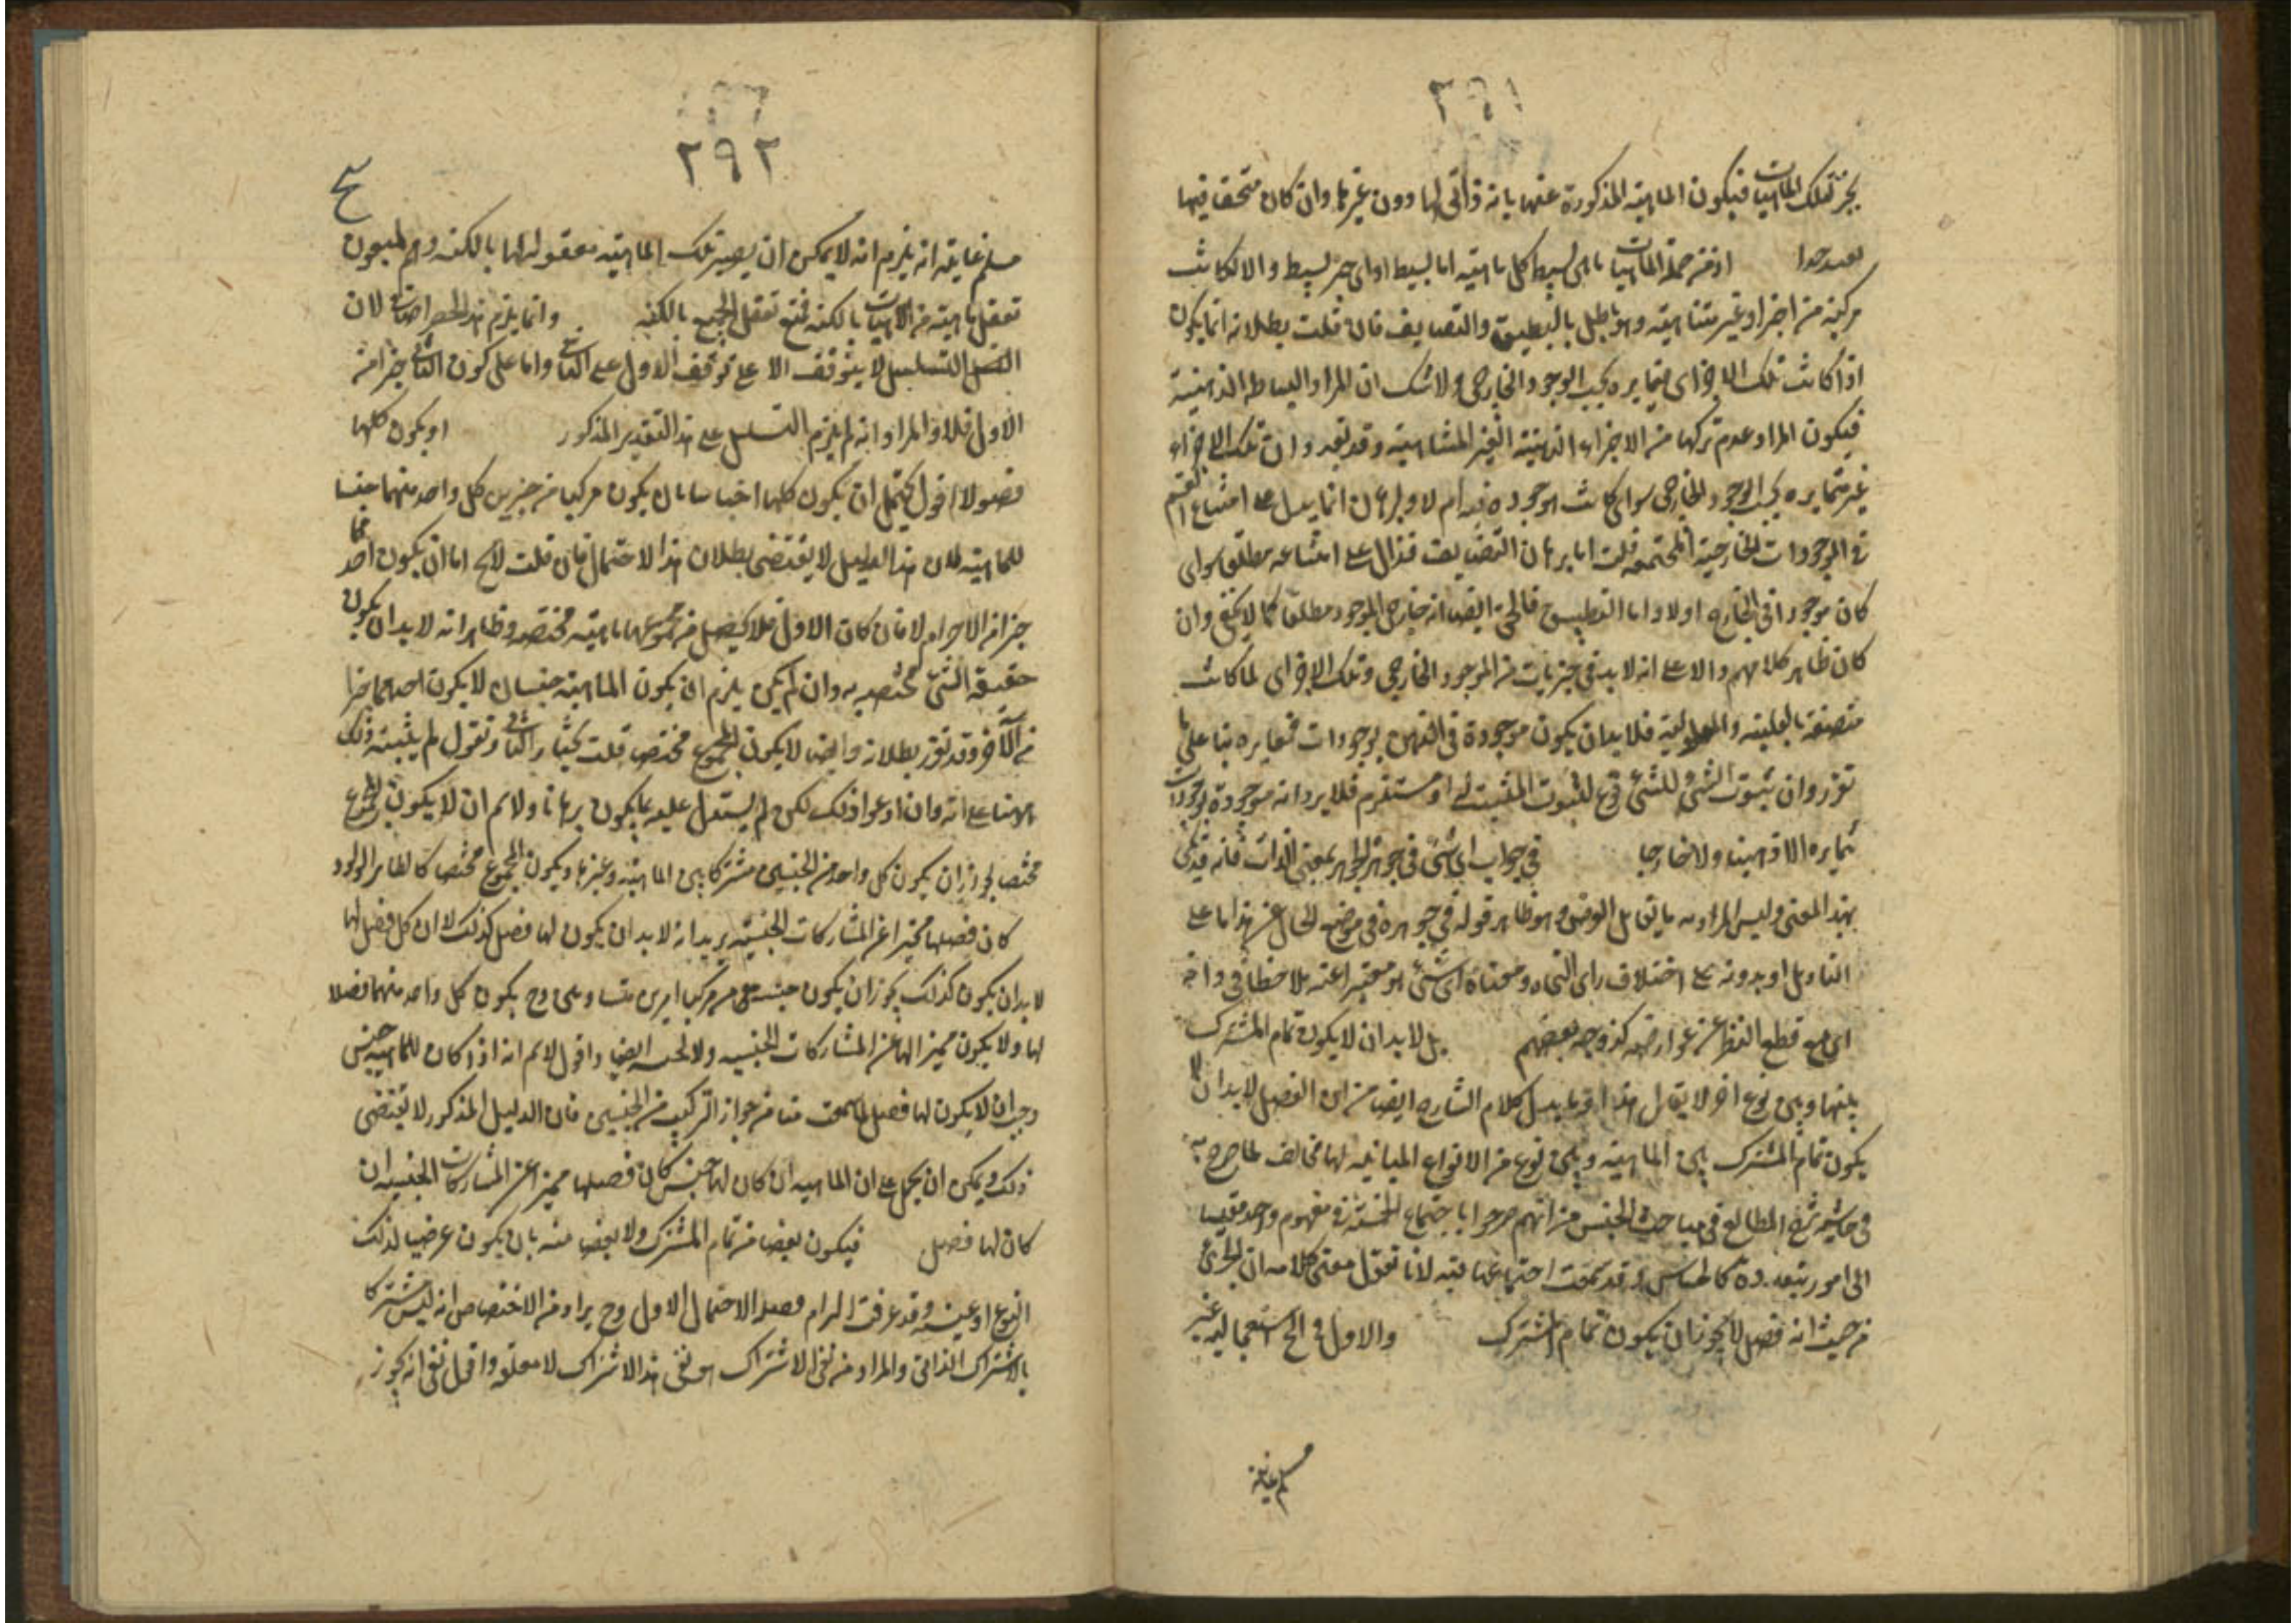 ٢٩١
لتلك الماهيات فيكون الماهية المذكورة عنها بانه ذاتى لها دون غيرها وان كان متحققا فيها
اذ من جملة الماهيات ماهى بسيط كل ماهية اما بسيط او اى جزء بسيط والا لكانت
مركبة من اجزاء غير متناهية وهو باطل بالتطبيق والتضايف فان قلت بطلانه انما يكون
اذا كانت تلك الاجزاى متمايزه بحسب الوجود الخارجى ولا شك ان المراد البساطه الذهنية
فيكون المراد عدم تركبها من الاجزاء الذهنية الغير المتناهية وقد تقرر ان تلك الاجزاء
غير متمايزه بحسب الوجود الخارجى سواى كانت موجوده فيه ام لا وبرهان انما يدل على امتناع القسم
فى الموجودات الخارجية المجتمعه قلت اما برهان التضايف فدال على امتناعه مطلقا سواى
كان موجودا فى الخارج اولا واما التطبيق فالحق ايضا انه جار فى الموجود مطلقا كما لا يخفى وان
كان ظاهر كلامهم دالا على انه لابد فى جزئيات من الموجود الخارجى وتلك الاجزاى لما كانت
متصفة بالعلية والمعلولية فلا بد ان يكون موجودة فى الذهن بوجودات متغايره بنا على ما
تقرر وان ثبوت الشئ للشئ فرع لثبوت المثبت له او مستلزم فلا يرد انه موجودة بوجودات
متمايزه الا ذهنيا ولا خارجا فى جواب اى شئ فى جوهره الجوهر بمعنى الذات فانه قد يكى
بهذا المعنى وليس المراد به ما يقابل العرض وهو ظاهر قوله فى جوهره فى موضع الحال عن هذا اما على
التاويل او بدونه على اختلاف راى النحاه ومعناه اى شئ هو معتبرا عنه ملاحظا فى ذاته
اى مع قطع النظر عن عوارضه كذا وجه بعضهم بل لابد ان لا يكون تمام المشترك
بينها وبين نوع اخر لا يقال هذا وما يدل كلام الشارح ايضا من ان الفصل لابد ان لا
يكون تمام المشترك بين الماهية وبين نوع من الانواع المباينه لها مخالف لما صرح به
فى حاشية شرح المطالع فى مباحث الجنس من انهم صرحوا باجتماع الخمسة فى مفهوم واحد مقيسا
الى امور متعدده كالحساس وقد تحققت اجتماعها فيه لانا نقول معنى كلامه ان الجزئ
من حيث انه فصل لا يجوز ان يكون تمام المشترك والاول فى الخ استعماليه غير
مسلم غايته
٢٩٢
مسلم غايته انه يلزم انه لا يمكن ان يصير تلك الماهية معقوله لها بالكنه وهم
تعقل ماهية من الماهيات بالكنه فمنع تعقل الجميع بالكنه وانما يلزم هذا لان
التسلسل لا يتوقف الا على توقف الاول على الثانى واما على كون الثانى جزا من
الاول فلا والمراد انه لم يلزم التسلسل على هذا التقدير المذكور او يكون كلها
فصولا اقول يحتمل ان يكون كلها اجناسا بان يكون مركبا من جزئين كل واحد منهما جنسا
للماهية فان هذا الدليل لا يقتضى بطلان هذا الاحتمال فان قلت لا يخ اما ان يكون احدهما
جزا من الاخر ام لا فان كان الاول فلا يحصل من مجموعهما ماهية مختصه وظاهر انه لابد ان يكون
حقيقة الشئ مختصه به وان لم يكن يلزم ان يكون الماهية جنسان لا يكون احدهما جزا
من الآخر وقد تقرر بطلانه وايضا لا يكون المجموع مختصا قلت نختار الثانى ونقول لم يثبت ذلك
الامتناع انه وان ادعوا ذلك لكن لم يستدل عليه بما يكون برهانا ولا نم ان لا يكون المجموع
مختصا لجواز ان يكون كل واحد من الجنسين مشتركا بين الماهية وغيرها ويكون المجموع مختصا كالطاير الولود
كان فصلها مميزا عن المشاركات الجنسيه يريد انه لابد ان يكون لها فصل كذلك لا ان كل فصل لها
لابد ان يكون كذلك يجوز ان يكون جنسه مركبا من امرين متساويين وح يكون كل واحد منهما فصلا
لها ولا يكون مميزا لها عن المشاركات الجنسيه ولا لجنسه ايضا واقول لا نم انه اذا كان للماهيه جنس
وجب ان لا يكون لها فصل لما سمعت منا من جواز التركيب من الجنسين فان الدليل المذكور لا يقتضى
ذلك ويمكن ان يحمل على ان الماهيه ان كان لها جنس كان فصلها مميزا عن المشاركات الجنسيه ان
كان لها فصل فيكون بعضا من تمام المشترك ولا بعضا منه بان يكون عرضيا لذلك
النوع او عينه وقد عرفت المرام فصل الاحتمال الاول وح يراد من الاختصاص انه ليس مشتركا
بالاشتراك الذاتى والمراد من نفى الاشتراك هو نفى هذا الاشتراك لا مطلقه واقول نفى انه يجوز